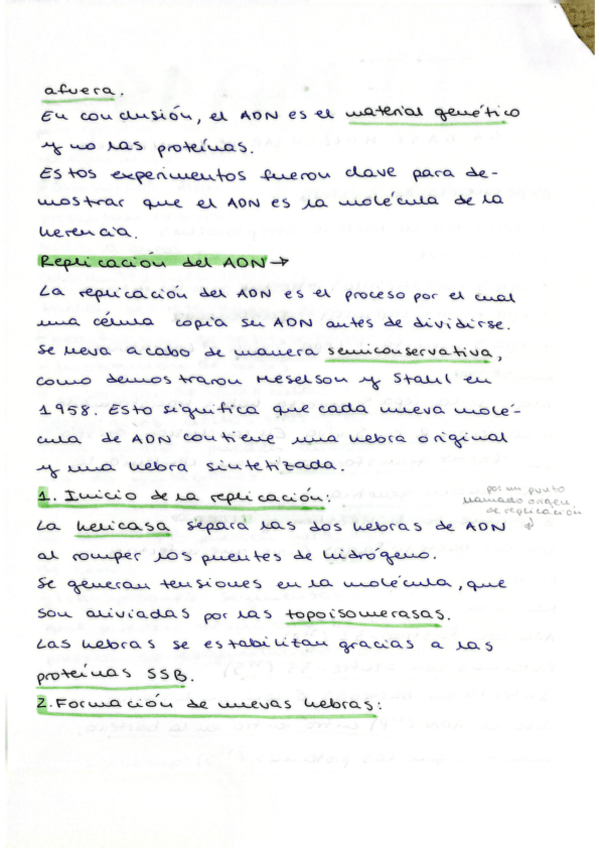 afuera.
En conclusión, el ADN es el material genético
y no las proteínas.
Estos experimentos fueron clave para de-
mostrar que el ADN es la molécula de la
herencia.
Replicación del ADN →
La replicación del ADN es el proceso por el cual
una célula copia su ADN antes de dividirse.
Se lleva a cabo de manera semiconservativa,
como demostraron Meselson y Stahl en
1958. Esto significa que cada nueva molé-
cula de ADN contiene una hebra original
y una hebra sintetizada.
1. Inicio de la replicación:
por un punto
llamado origen
de replicación
↓
La helicasa separa las dos hebras de ADN
al romper los puentes de hidrógeno.
Se generan tensiones en la molécula, que
son aliviadas por las topoisomerasas.
Las hebras se estabilizan gracias a las
proteínas SSB.
2. Formación de nuevas hebras: